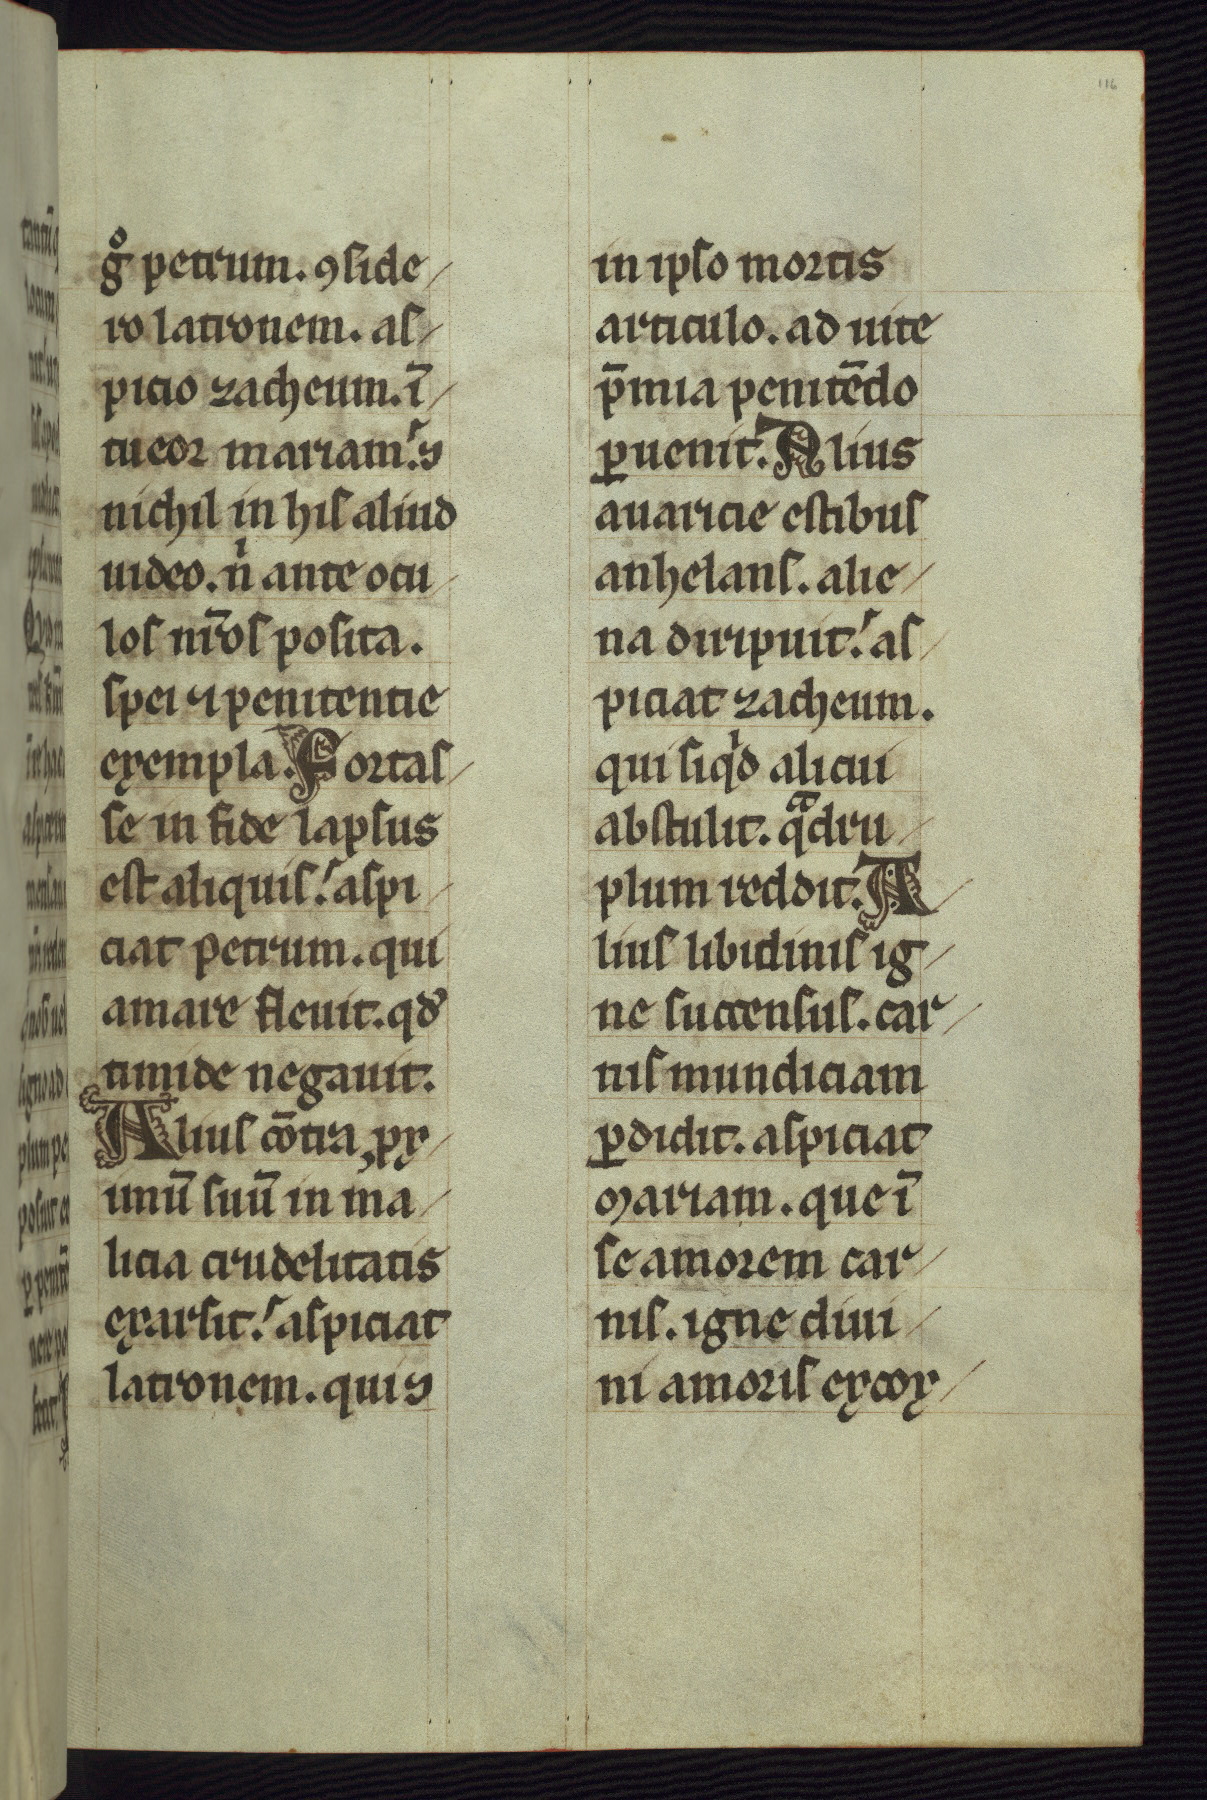 116
gͦ petrum. ꝯside
ro latronem. as
picio zacheum. ī
tueor mariam. ⁊
nichil in his aliud
uideo. nͥ ante ocu
los nr̄os posita.
spei ⁊ penitentie
exempla. Fortas
se in fide lapsus
est aliquis. aspi
ciat petrum. qui
amare fleuit. qd̓
timide negauit.
Alius cōtra ꝓxi
mū suū in ma
licia crudelitatis
exarsit. aspiciat
latronem. qui ⁊
in ipso mortis
articulo. ad uite
p̄mia penitēdo
ꝑuenit. Alius
auaricie estibus
anhelans. alie
na diripuit. as
piciat zacheum.
qui siqͥd alicui
abstulit. qͣdru
plum reddit. A
lius libidinis ig
ne succensus. car
nis mundiciam
ꝑdidit. aspiciat
Mariam. que ī
se amorem car
nis. igne diui
ni amoris excox